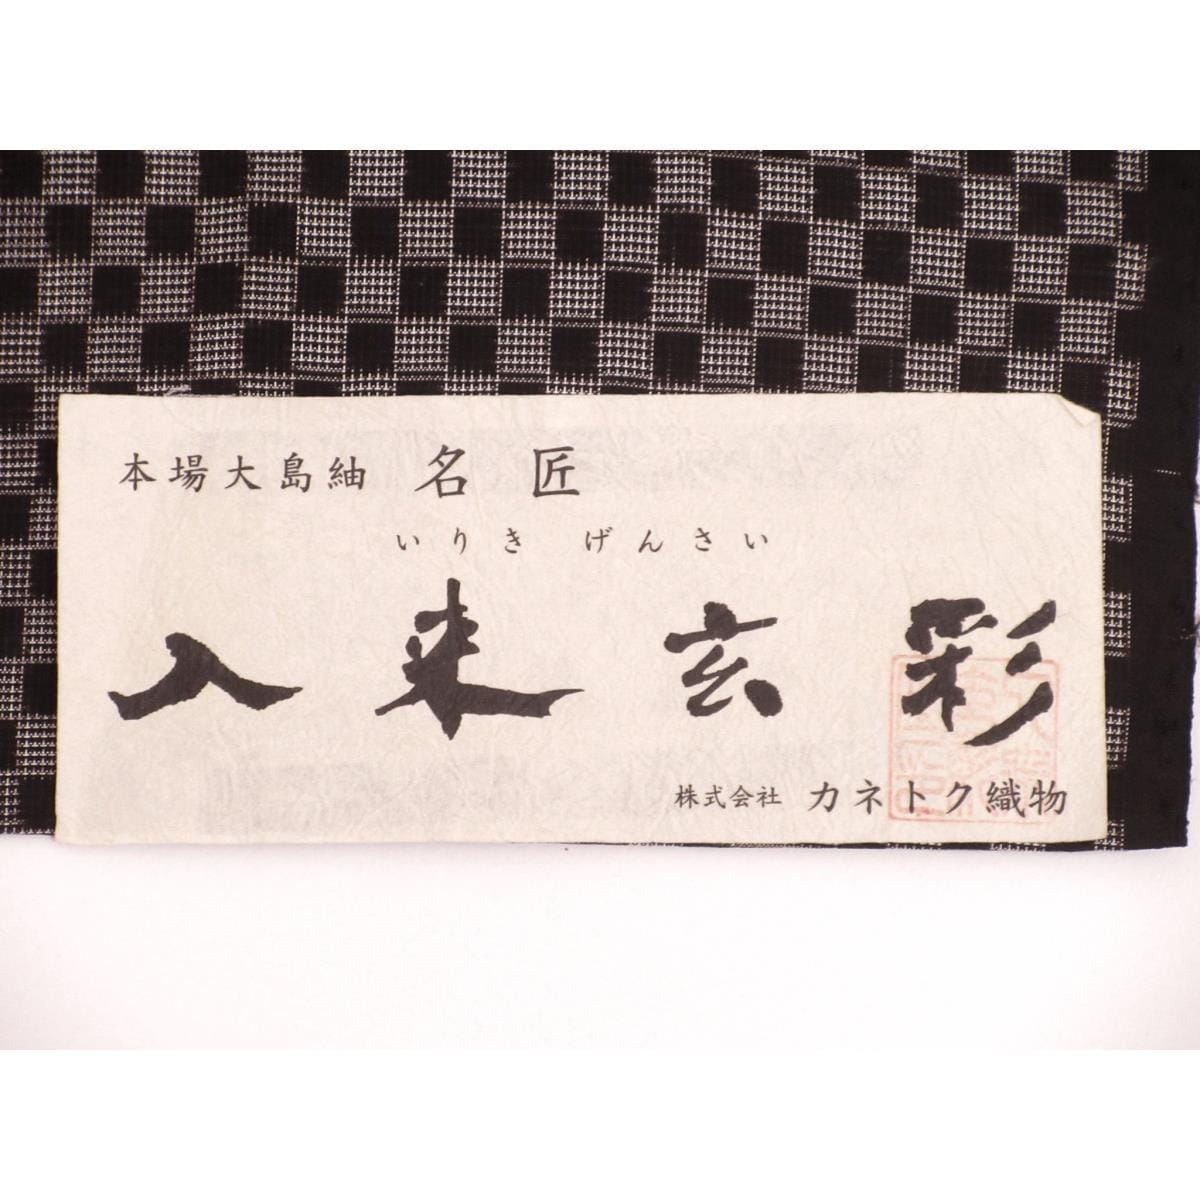 本場大島紬 名匠
いりき げんさい
入来玄彩
株式会社 カネトク織物